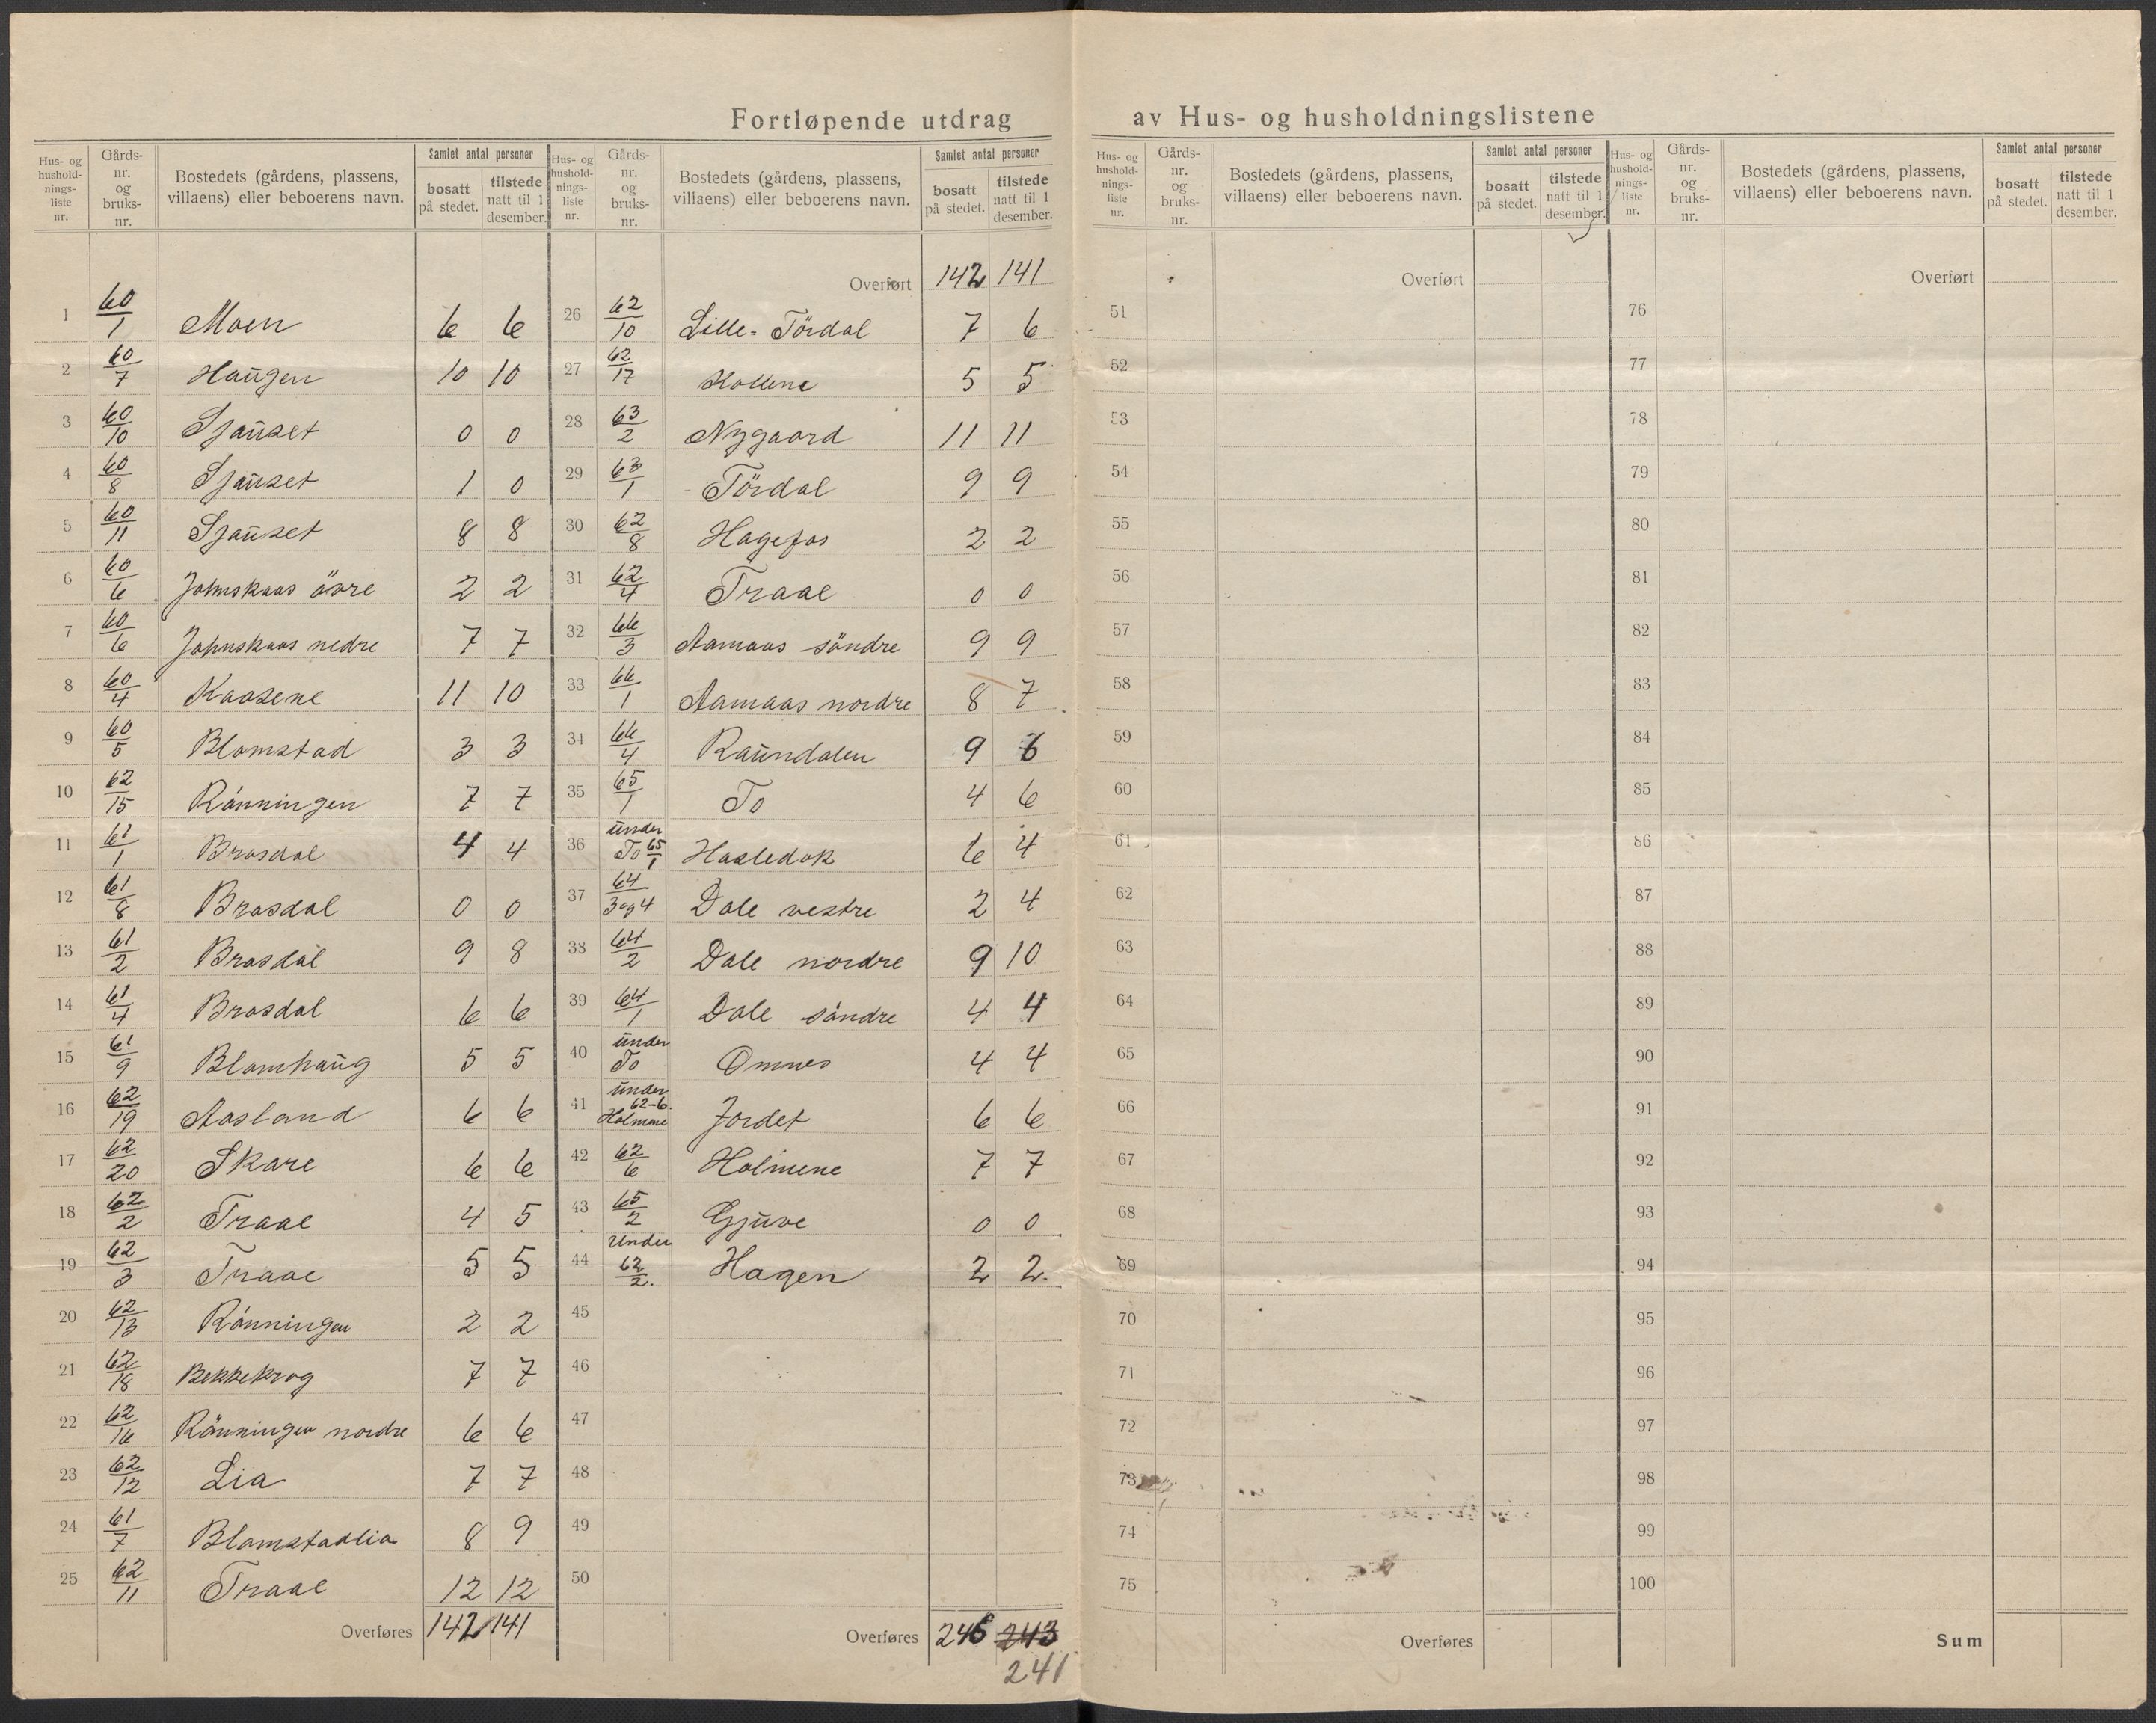 Fortløpende utdrag av Hus- og husholdningslistene
Hus- og husholdnings- liste nr. | Gårds- nr. og bruks- nr. | Bostedets (gårdens, plassens, villaens) eller beboerens navn. | Samlet antal personer | bosatt på stedet. | tilstede natt til 1 desember.
1 60/1 Moen 6 6
2 60/7 Haugen 10 10
3 60/10 Sjauset 0 0
4 60/8 Sjauset 1 0
5 60/11 Sjauset 8 8
6 60/6 Johnskaas övre 2 2
7 60/6 Johnskaas nedre 7 7
8 60/4 Kaasene 11 10
9 60/5 Blomstad 3 3
10 62/15 Rönningen 7 7
11 61/1 Brosdal 4 4
12 61/8 Brosdal 0 0
13 61/2 Brosdal 9 8
14 61/4 Brosdal 6 6
15 61/9 Blomhaug 5 5
16 62/19 Aasland 6 6
17 62/20 Skare 6 6
18 62/2 Traae 4 5
19 62/3 Traae 5 5
20 62/13 Rönningen 2 2
21 62/18 Bekkekrog 7 7
22 62/16 Rönningen nordre 6 6
23 62/12 Lia 7 7
24 61/7 Blomstadlia 8 9
25 62/11 Traae 12 12
Overføres 142 141
Hus- og husholdnings- liste nr. | Gårds- nr. og bruks- nr. | Bostedets (gårdens, plassens, villaens) eller beboerens navn. | Samlet antal personer | bosatt på stedet. | tilstede natt til 1 desember.
Overført 142 141
26 62/10 Lille-Tördal 7 6
27 62/17 Kollene 5 5
28 63/2 Nygaard 11 11
29 63/1 Tördal 9 9
30 62/8 Hagefos 2 2
31 62/4 Traae 0 0
32 66/3 Aamaas söndre 9 9
33 66/1 Aamaas nordre 8 7
34 66/4 Raundalen 9 6
35 65/1 To 4 6
36 under To 65/1 Hasledok 6 4
37 64/3 og 4 Dale vestre 2 4
38 64/2 Dale nordre 9 10
39 64/1 Dale söndre 4 4
40 under To Omnes 4 4
41 under 62-6. Holmene Jordet 6 6
42 62/6 Holmene 7 7
43 65/2 Gjuve 0 0
44 Under 62/2. Hagen 2 2.
45
46
47
48
49
50
Overføres 246 243
241
Hus- og husholdnings- liste nr. | Gårds- nr. og bruks- nr. | Bostedets (gårdens, plassens, villaens) eller beboerens navn. | Samlet antal personer | bosatt på stedet. | tilstede natt til 1 desember.
Overført
51
52
53
54
55
56
57
58
59
60
61
62
63
64
65
66
67
68
69
70
71
72
73
74
75
Overføres
Hus- og husholdnings- liste nr. | Gårds- nr. og bruks- nr. | Bostedets (gårdens, plassens, villaens) eller beboerens navn. | Samlet antal personer | bosatt på stedet. | tilstede natt til 1 desember.
Overført
76
77
78
79
80
81
82
83
84
85
86
87
88
89
90
91
92
93
94
95
96
97
98
99
100
Sum